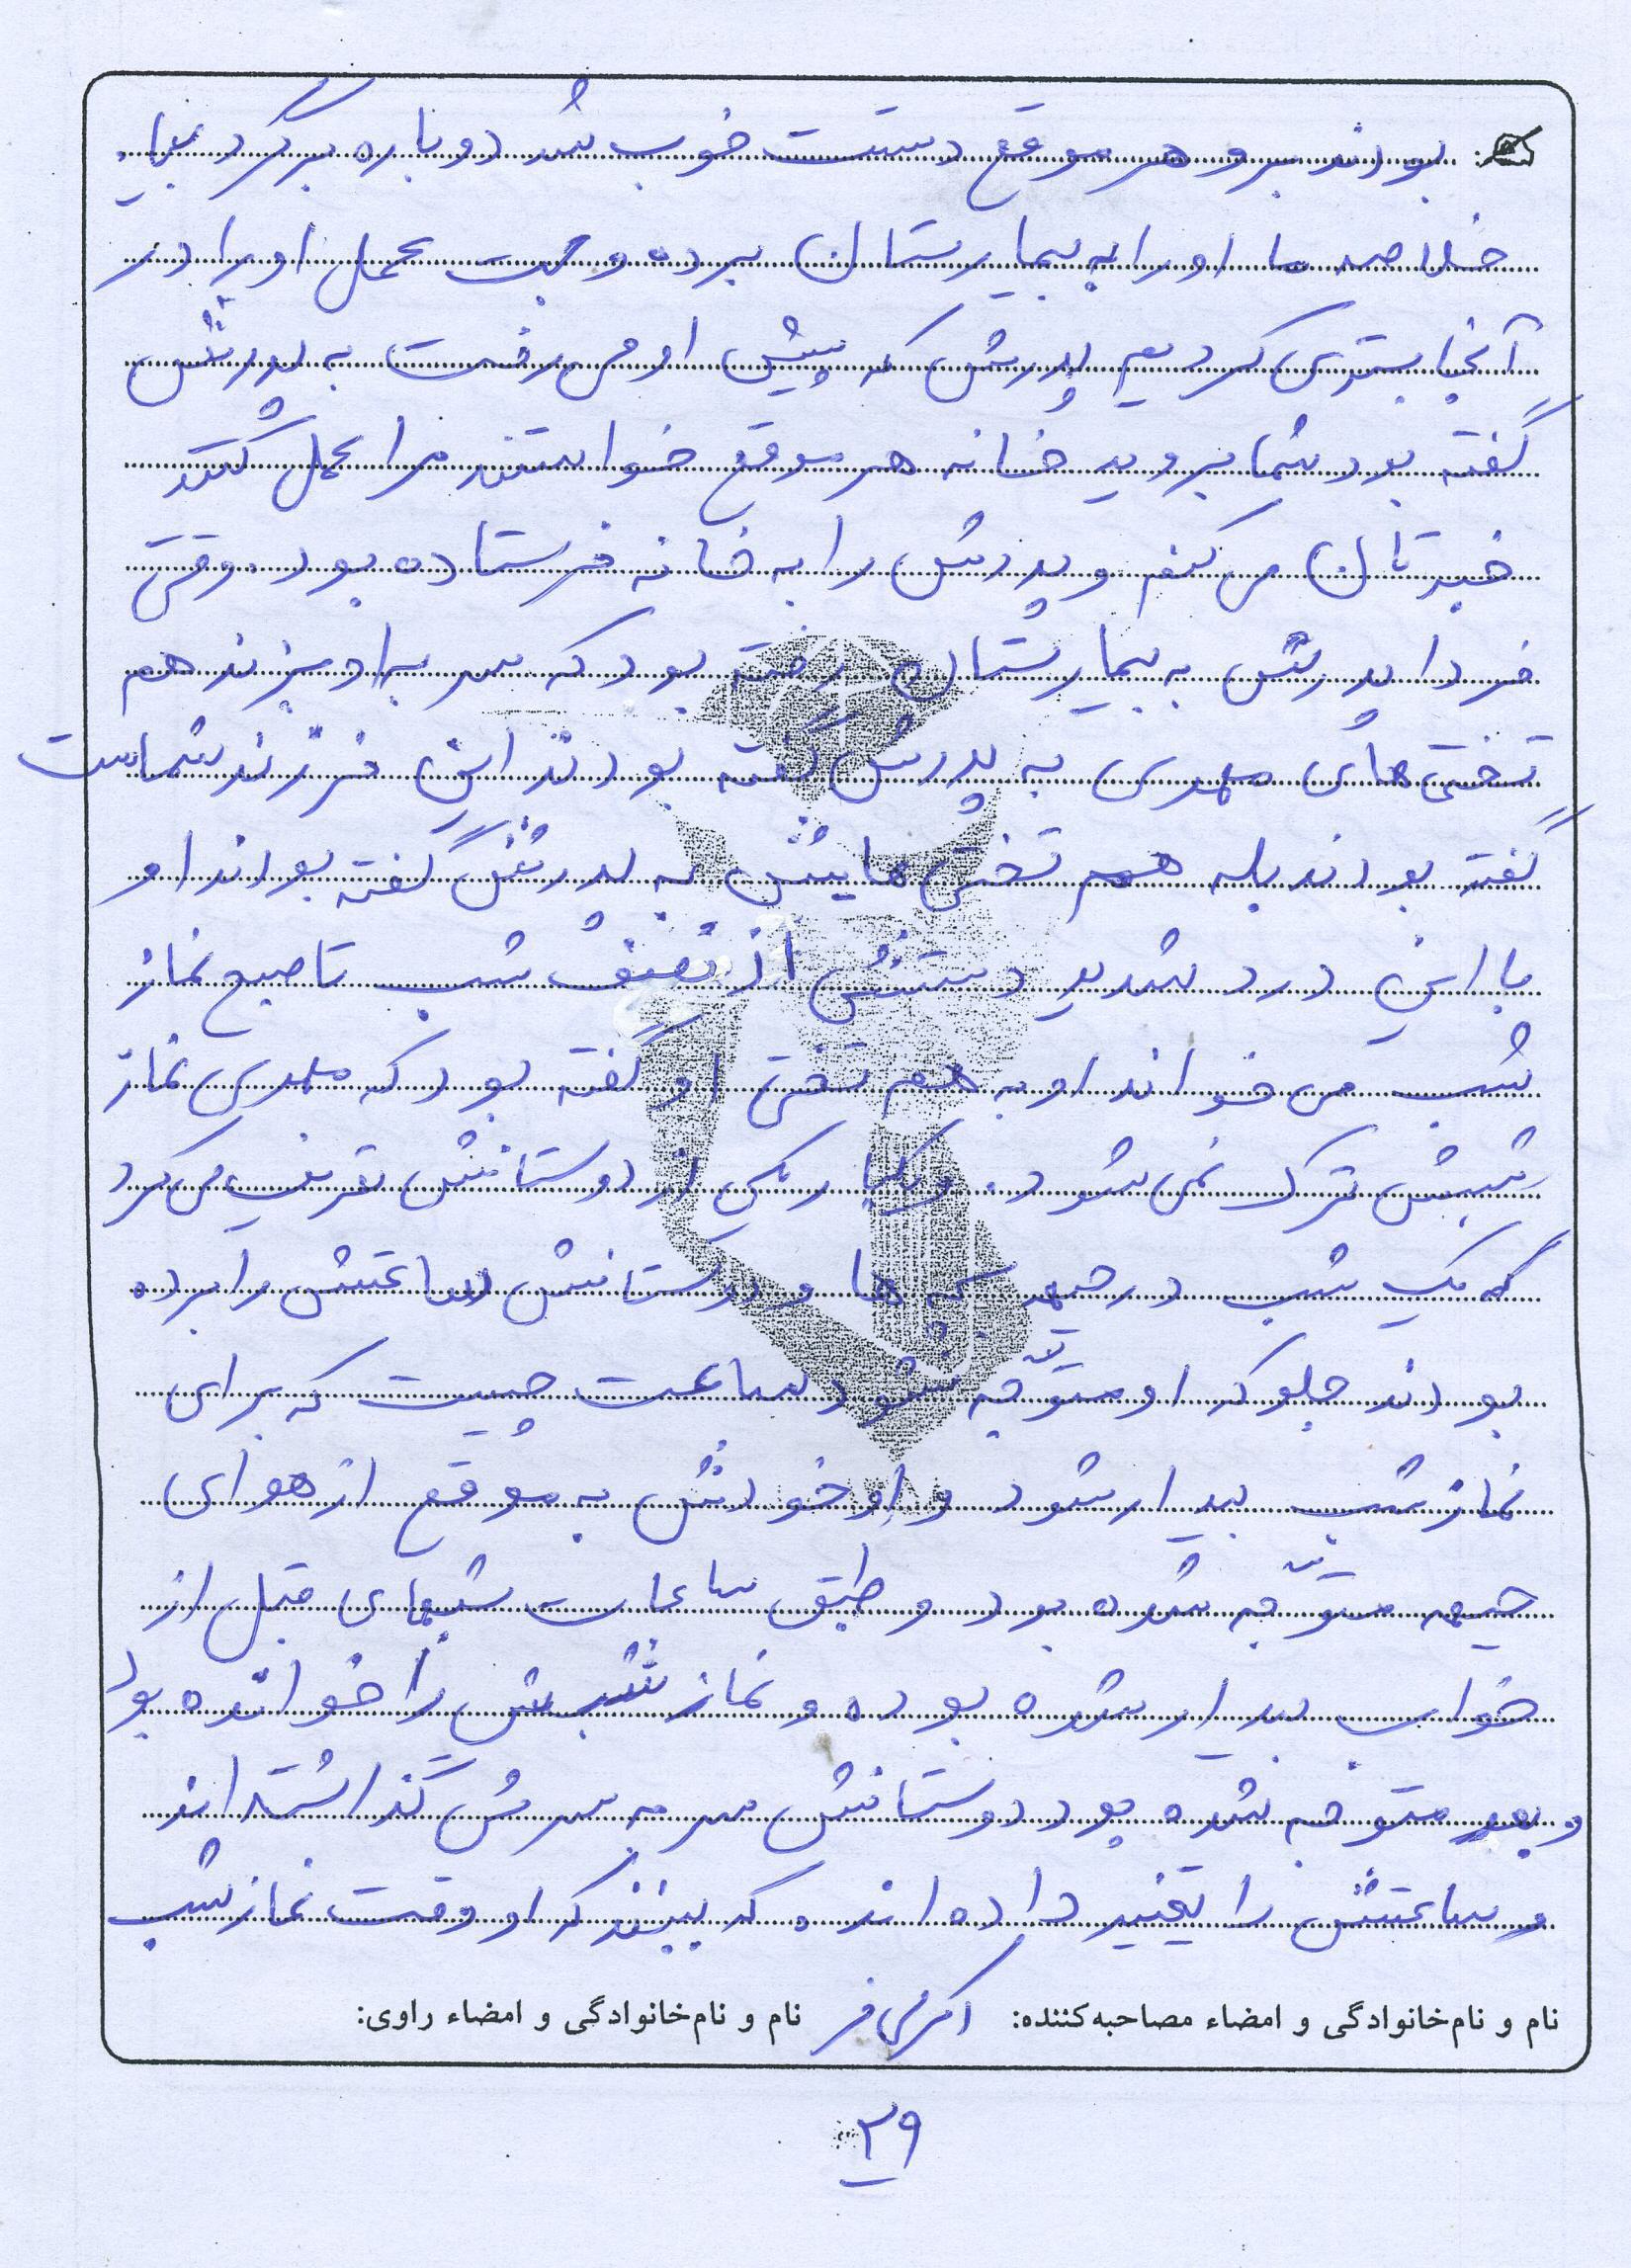 بودند برو هر موقع دستت خوب شد دوباره برگرد بیا.
خلاصه ما او را به بیمارستان برده و جهت عمل او را در
آنجا بستری کردیم پدرش که پیش او می‌رفت به پدرش
گفته بود شما بروید خانه هر موقع خواستند مرا عمل کنند
خبرتان می‌کنم و پدرش را به خانه فرستاده بود. وقتی
فردا پدرش به بیمارستان رفته بود که سر به او بزند هم
تختی‌های مهدی به پدرش گفته بودند این فرزند شماست
گفته بودند بله هم تختی‌هایش به پدرش گفته بودند او
با این درد شدید دستش از نصف شب تا صبح نماز
شب می‌خواند او به هم تختی او گفته بود که مهدی نماز
شبش ترک نمی‌شود. و یکبار یکی از دوستانش تعریف می‌کرد
که یک شب در جبهه بچه‌ها و دوستانش ساعتش را برده
بودند جلو که او متوّجه نشود ساعت چیست که برای
نماز شب بیدار شود و او خودش به موقع از هوای
جبهه متوّجه شده بود و طبق ساعات شبهای قبل از
خواب بیدار شده بوده و نماز شبش را خوانده بود
و بعد متوجه شده بود دوستانش سر به سرش گذاشته‌اند
و ساعتش را تغییر داده‌اند که ببینند که او وقت نماز شب
نام و نام‌خانوادگی و امضاء مصاحبه‌کننده: نام و نام‌خانوادگی و امضاء راوی:
۲۹